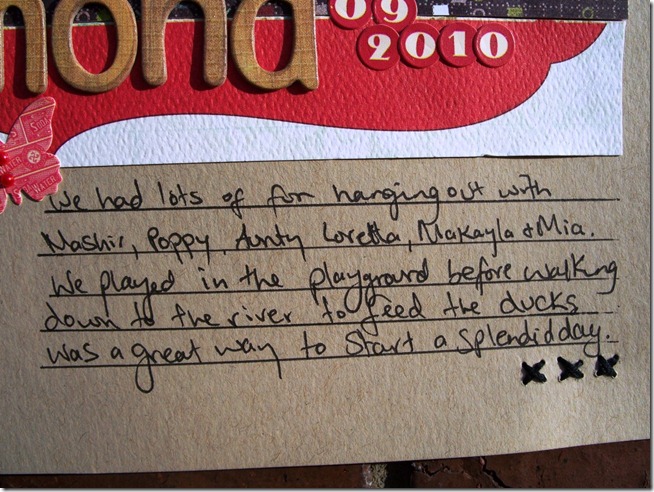 mond
09
2010
We had lots of fun hanging out with
Mashir, Poppy, Aunty Loretta, Makayla & Mia.
We played in the playground before walking
down to the river to feed the ducks
was a great way to start a splendid day.